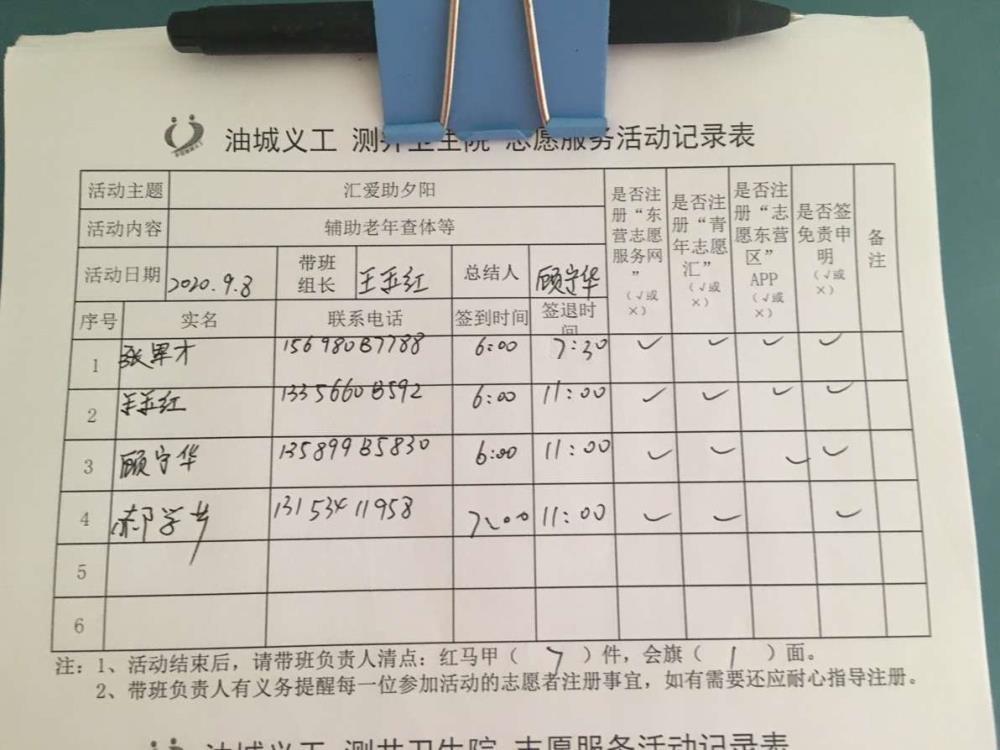 油城义工 测井卫生院 志愿服务活动记录表
活动主题 汇爱助夕阳 是否注册“东营志愿服务网”（√或×） 是否注册“青年志愿汇”（√或×） 是否注册“志愿东营区”APP（√或×） 是否签免责申明（√或×） 备注
活动内容 辅助老年查体等
活动日期 2020.9.8 带班组长 王玉红 总结人 顾守华
序号 实名 联系电话 签到时间 签退时间
1 张军才 6:00 7:30 ✓ ✓ ✓ ✓
2 王玉红 6:00 11:00 ✓ ✓ ✓ ✓
3 顾守华 6:00 11:00 ✓ ✓ ✓ ✓
4 郝学 13153411958 7:00 11:00 ✓ ✓ ✓
5
6
注：1、活动结束后，请带班负责人清点：红马甲（ 7 ）件，会旗（ 1 ）面。
2、带班负责人有义务提醒每一位参加活动的志愿者注册事宜，如有需要还应耐心指导注册。
油城义工 测井卫生院 志愿服务活动记录表